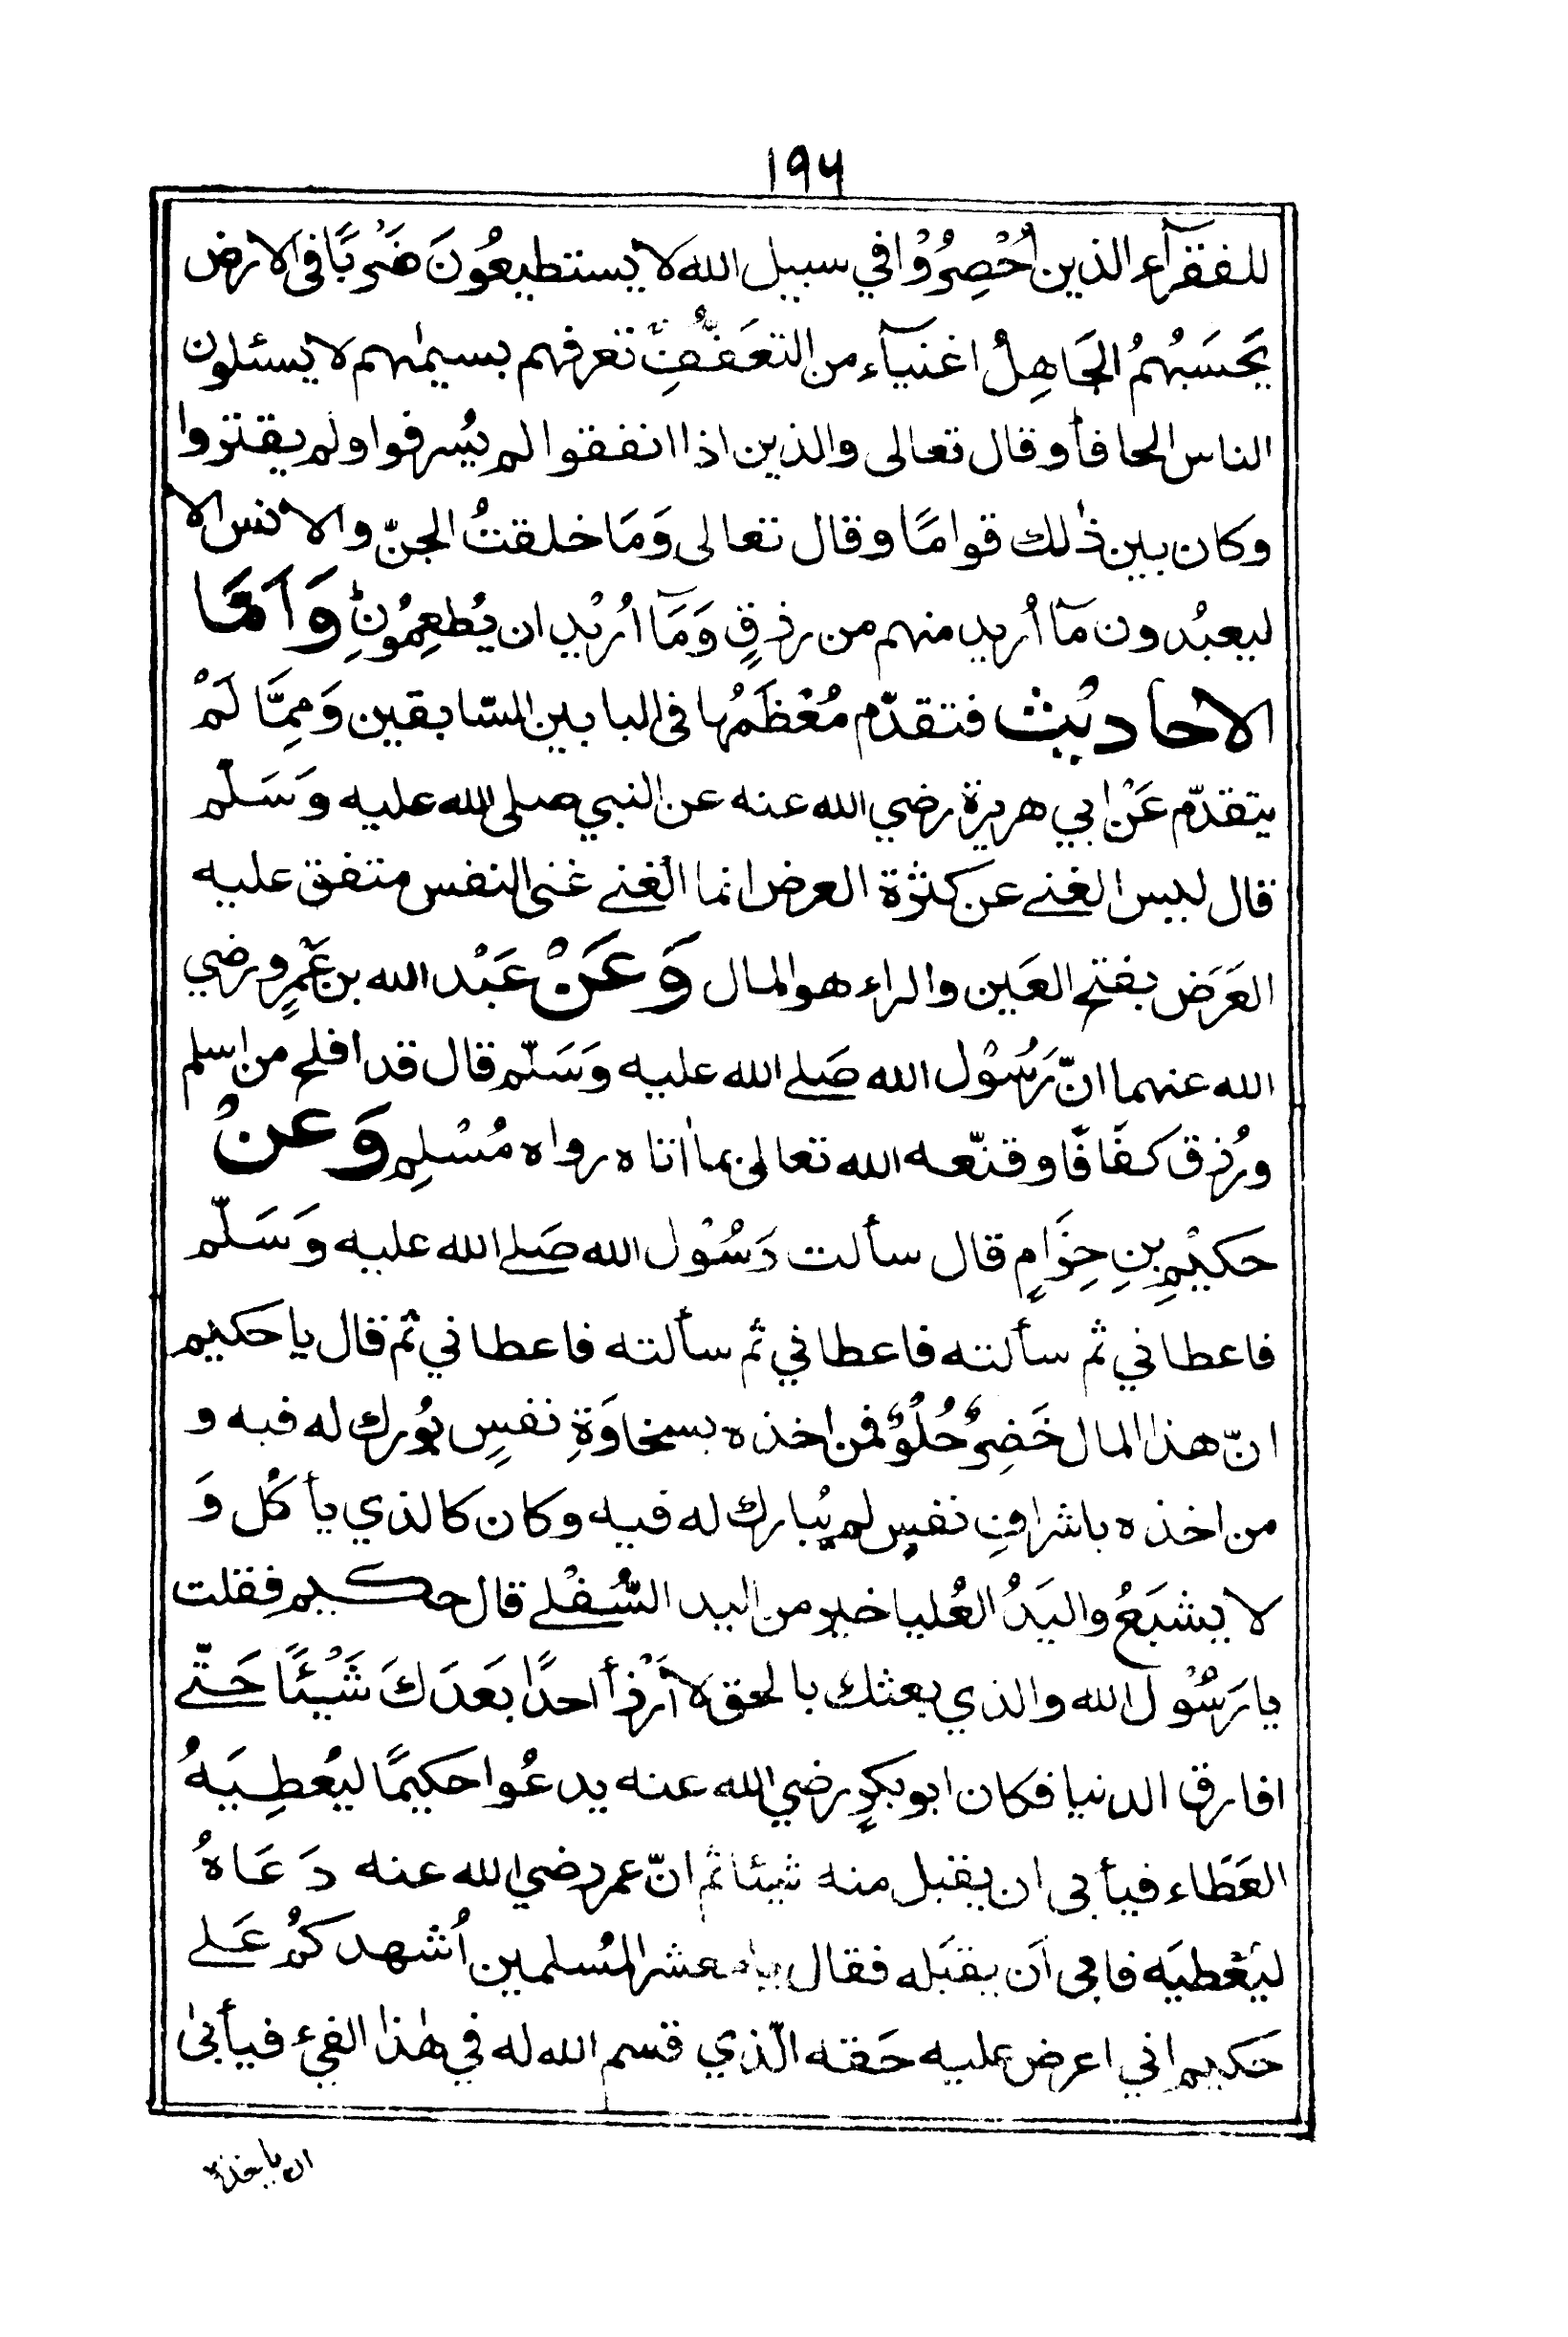 ١٩٦
للفقرآء الذين اُحْصِرُوْا في سبيل الله لا يستطيعُونَ ضَرْبًا فى الارض
يَحْسَبُهمُ الجَاهِلُ اغنيآء من التعَفُّفِ تعرفهم بسيمٰهم لا يسئلون
الناس الحافاً وقال تعالى والذين اذا انفقوا لم يُسرفوا ولم يقتروا
وكان بين ذٰلك قوامًا وقال تعالى وَمَا خلقتُ الجنّ والانس الا
ليعبُدون مآ اُريد منهم من رزقٍ وَمَآ اُرْيْد ان يُطعِمُونِ وَاَمَّا
الاحاديْث فتقدّم مُعْظَمُها فى البابين السّابقين وَمِمَّا لَمْ
يتقدّم عَنْ ابي هريرة رضي الله عنه عن النبي صلى الله عليه وَسَلّم
قال ليس الغنے عن كثرة العرض انما الغنے غنى النفس متفق عليه
العَرَض بفتح العَين والراء هو المال وَعَنْ عَبْد الله بن عَمْرٍو رضي
الله عنهما انّ رَسُوْل الله صَلے الله عليه وَسَلّم قال قد افلح من اسلم
ورُزق كفَافًا وقنّعه الله تعالى بما اٰتاه رواه مُسْلِم وَعنْ
حكيْمِ بنِ حِزَامٍ قال سألت رَسُوْل الله صَلے الله عليه وَسَلّم
فاعطاني ثم سألته فاعطاني ثم سألته فاعطاني ثم قال يا حكيم
انّ هذا المال خَضِرٌ حُلْوٌ فمن اخذه بسخاوَةِ نفسٍ بُورك له فيه و
من اخذه باشرافِ نفسٍ لم يُبارك له فيه وكان كالذي يأكُل وَ
لا يشبَعُ واليَدُ العُليا خير من اليد السُّفْلے قال حكيم فقلت
يا رَسُوْل الله والذي بعثك بالحق لا اَرْزأ احدًا بَعَدَكَ شَيْئًا حَتّے
افارق الدنيا فكان ابو بكرٍ رضي الله عنه يدعُوا حكيمًا ليُعطِيَهُ
العَطَاء فيأبى ان يقبل منه شيئا ثم انّ عمر رضي الله عنه دَعَاهُ
ليُعْطيَه فابى اَن يقبَله فقال يا معشر المُسلمين اُشهدكُم عَلے
حكيم اني اعرض عليه حَقه الّذي قسم الله له في هٰذا الفيء فيأبىٰ
ان ياخذه